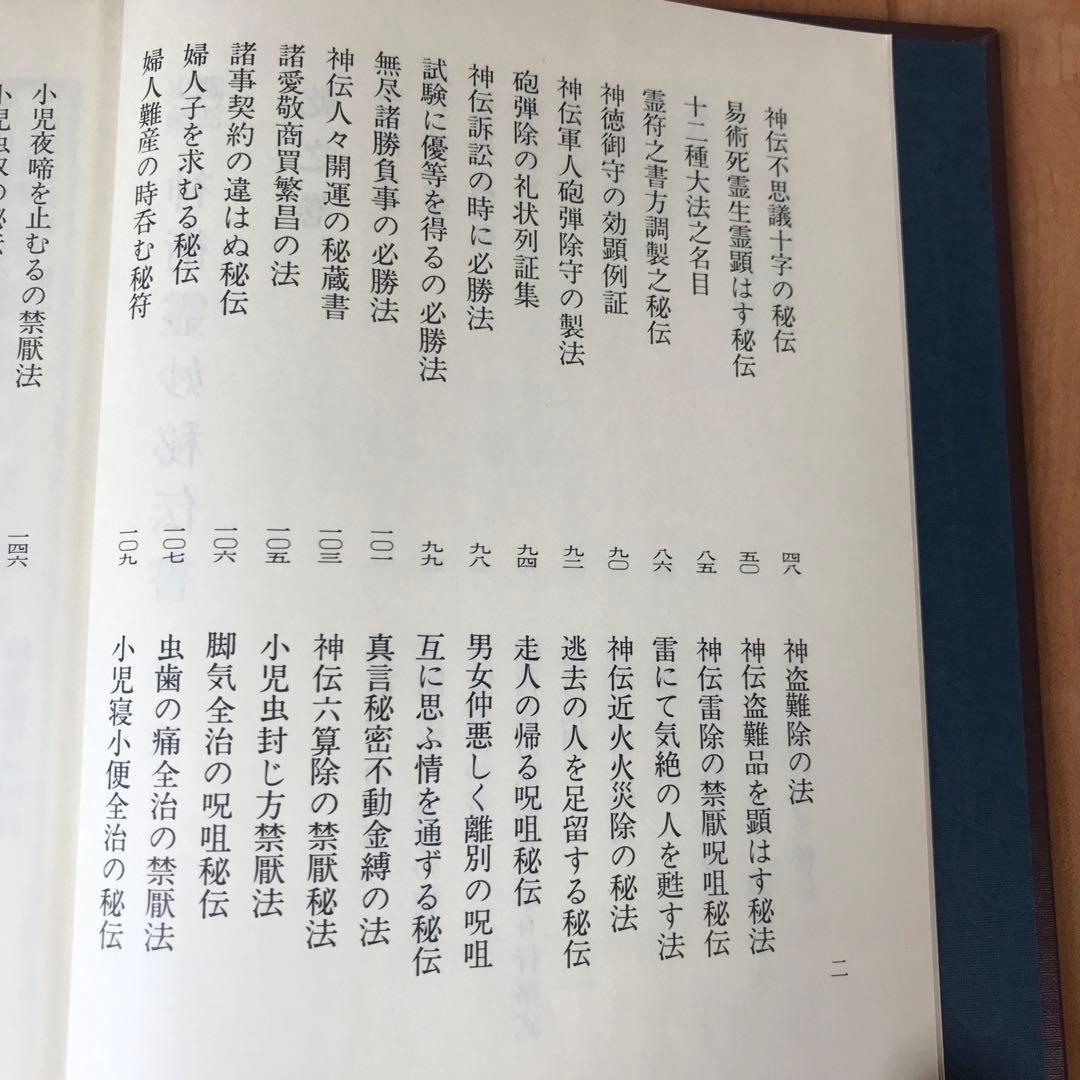 神伝不思議十字の秘伝 四八
易術死霊生霊顕はす秘伝 五〇
十二種大法之名目 八五
霊符之書方調製之秘伝 八六
神徳御守の効顕例証 九〇
神伝軍人砲弾除守の製法 九二
砲弾除の礼状列証集 九四
神伝訴訟の時に必勝法 九八
試験に優等を得るの必勝法 九九
無尽諸勝負事の必勝法 一〇一
神伝人々開運の秘蔵書 一〇三
諸愛敬商買繁昌の法 一〇五
諸事契約の違はぬ秘伝 一〇六
婦人子を求むる秘伝 一〇七
婦人難産の時呑む秘符 一〇九
神盗難除の法
神伝盗難品を顕はす秘法
神伝雷除の禁厭呪咀秘伝
雷にて気絶の人を甦す法
神伝近火火災除の秘法
逃去の人を足留する秘伝
走人の帰る呪咀秘伝
男女仲悪しく離別の呪咀
互に思ふ情を通ずる秘伝
真言秘密不動金縛の法
神伝六算除の禁厭秘法
小児虫封じ方禁厭法
脚気全治の呪咀秘伝
虫歯の痛全治の禁厭法
小児寝小便全治の秘伝
二
小児夜啼を止むるの禁厭法 一四六